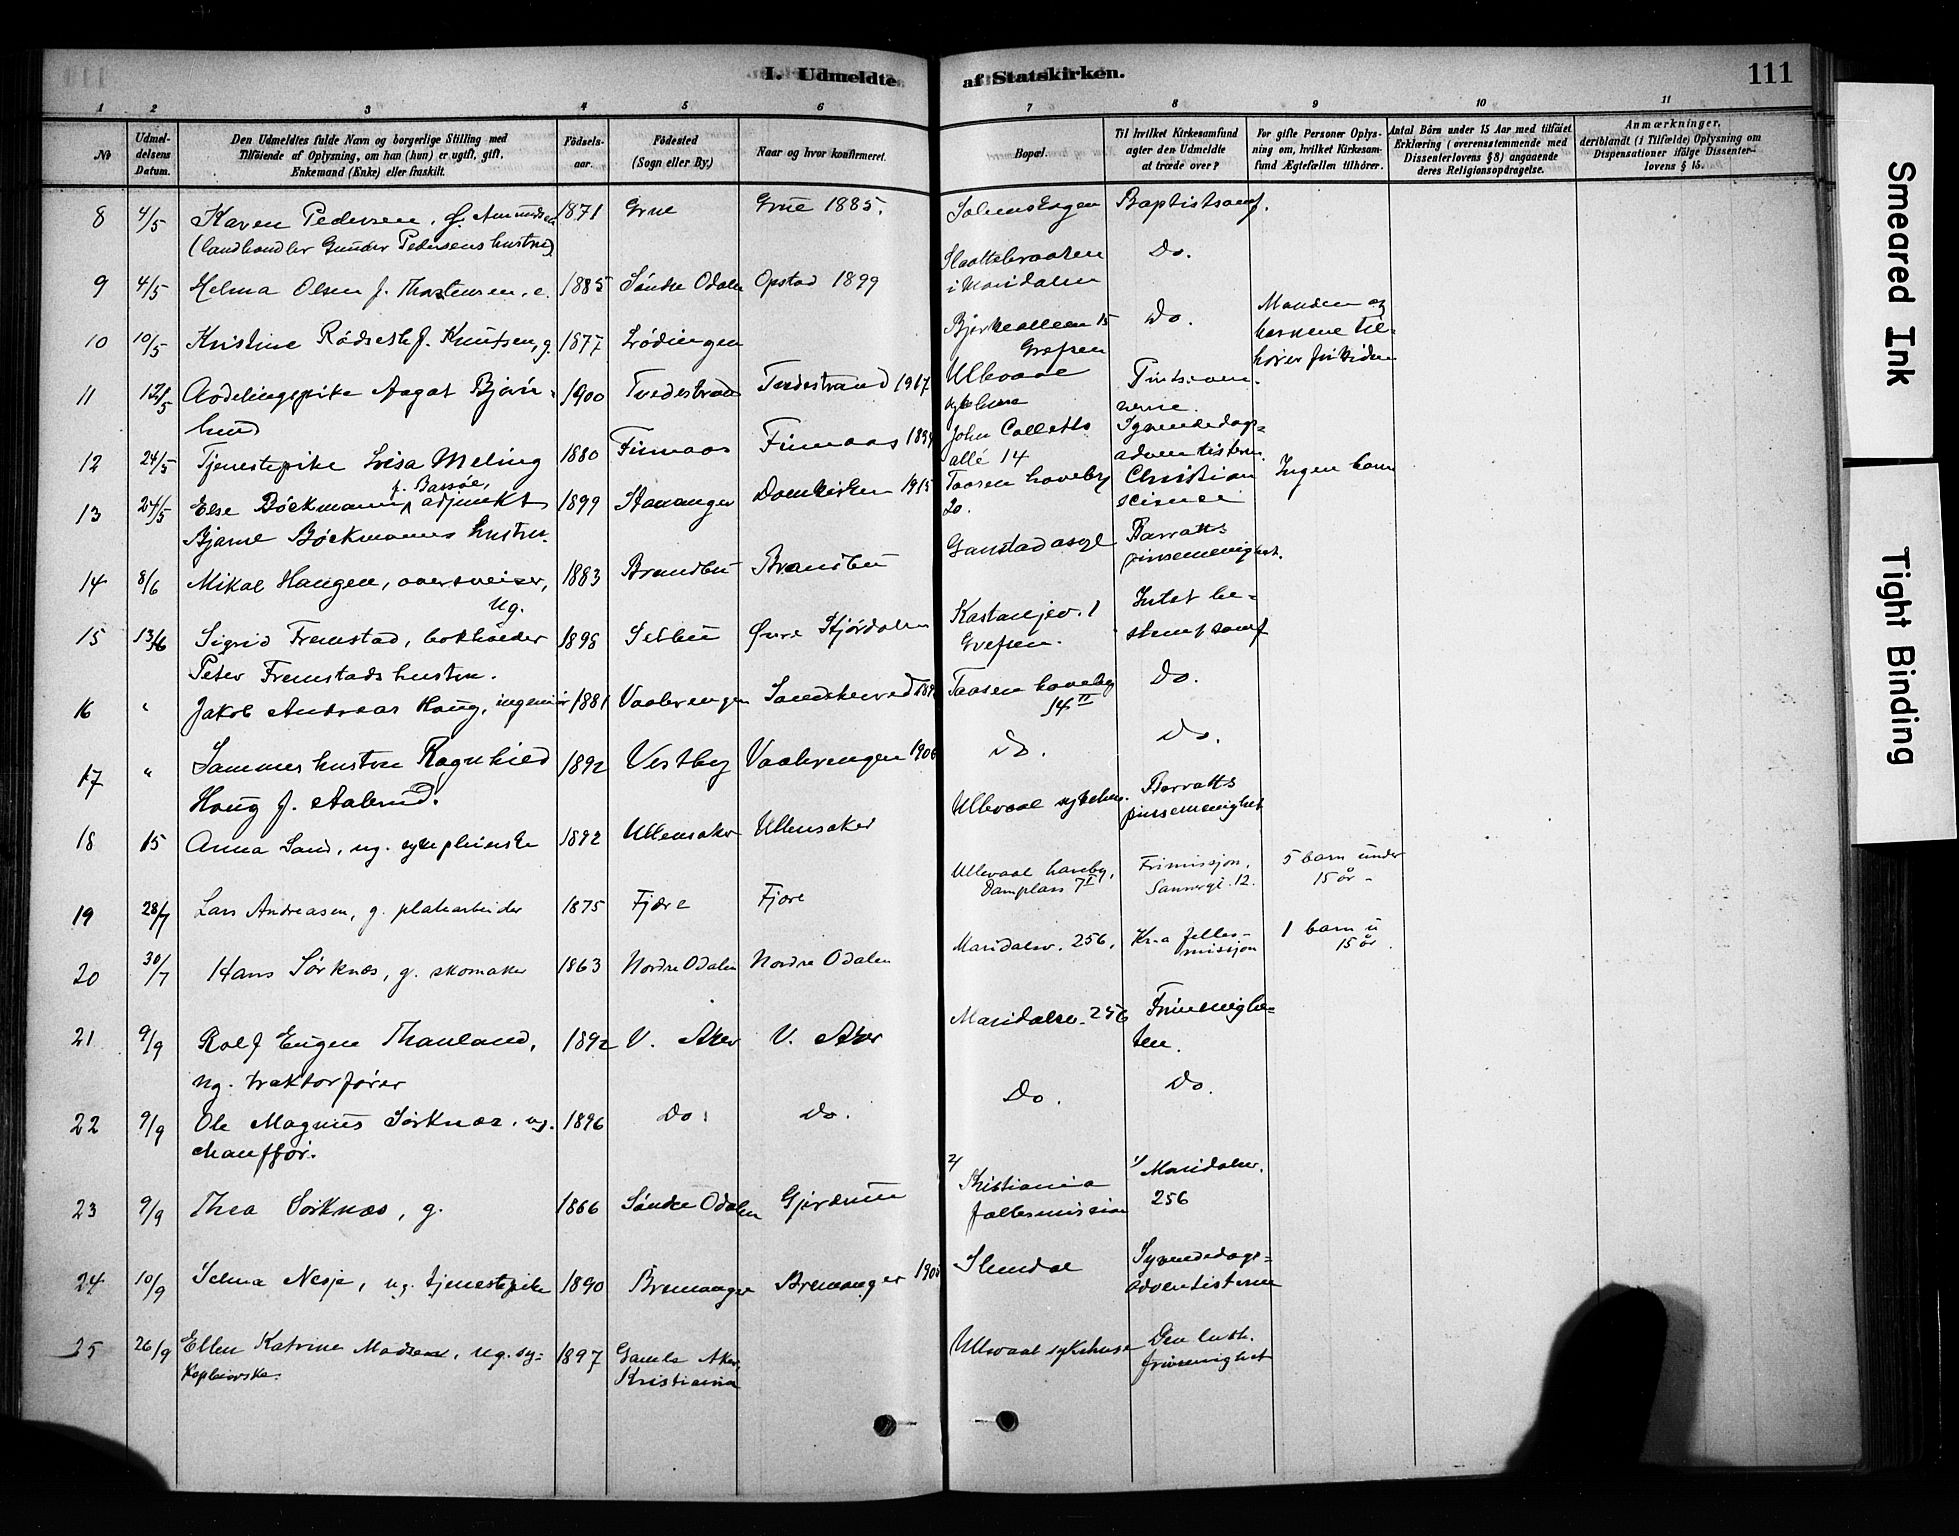 I. Udmeldte af Statskirken.
111
1 2 3 4 5 6 7 8 9 10 11
No
Udmeldelsens Datum.
Den Udmeldtes fulde Navn og borgerlige Stilling med
Tilføiende af Oplysning, om han (hun) er ugift, gift,
Enkemand (Enke) eller fraskilt.
Fødselsaar.
Fødested
(Sogn eller By.)
Naar og hvor konfirmeret.
Bopæl.
Til hvilket Kirkesamfund
agter den Udmeldte
at træde over?
For gifte Personer Oplys-
ning om, hvilket Kirkesam-
fund Ægtefællen tilhörer.
Antal Börn under 15 Aar med tilföiet
Erklæring (overensstemmende med
Dissenterlovens § 8) angaaende
deres Religionsopdragelse.
Anmærkninger,
deriblandt (i Tilfælde) Oplysning om
Dispensationer ifölge Dissenter-
lovens § 15.
8 4/5 Karen Pedersen, f. Amundsen 1871 Grue Grue 1885. Solemskogen Baptistsamf.
(landhandler Gunder Pedersens hustru)
9 4/5 Helma Olsen f. Thorstensen, e. 1885 Søndre Odalen Opstad 1899 Slaattebraaten i Maridalen Do.
10 10/5 Kristine Rødseth f. Knutsen, g. 1877 Lødingen Bjerkealleen 15 Grefsen Do. Manden og barnene tilhører frikirken
11 12/5 Avdelingspike Aagot Bjørn- 1900 Tvedestrand Tvedestrand 1917 Ullevaal sykehuse
lund
12 24/5 Tjenestepike Lvisa Meling 1880 Finnaas Finnaas John Colletts allé 14 Syvendedags-adventistern.
13 24/5 Else Böckmann, f. Bassøe, adjunkt 1899 Stavanger Domkirken 1915 Taasen haveby 20. Christian science Ingen barn
Bjarne Böckmanns hustru.
14 8/6 Mikal Haugen, oversveiser, 1883 Brandbu Brandbu Gaustad asyl Barratts pinsemenighet.
ug.
15 13/6 Sigrid Fremstad, bokholder 1898 Selbu Øvre Stjørdalen Kastanjev. 1 Grefsen. Intet be-stemt samf
Peter Fremstads hustru.
16 " Jakob Andreas Haug, ingeniør 1881 Vaalerengen Sandsherred Taasen haveby 14 II Do.
17 " Sammes hustru Ragnhild 1892 Vestby Vaalerengen 1906 Do. Do.
Haug f. Aalerud.
18 15 Anna Sand, ug. sykepleierske 1892 Ullensaker Ullensaker Ullevaal sykehus. Barratts pinsemenighet
19 28/7 Lars Andreasen, g. platearbeider 1875 Fjære Fjære Ullevaal haveby, Damplass 7 I Frimissjon, Sannergt. 12. 5 barn under 15 år.
20 30/7 Hans Sørknæs, g. skomaker 1863 Nordre Odalen Nordre Odalen Maridalsv. 256, Kr.a felles-missjon 1 barn u 15 år.
21 9/9 Rolf Eugen Thauland, 1892 V. Aker V. Aker Maridalsv. 256 Frimenighe-ten.
ug. traktorfører
22 9/9 Ole Magnus Sørknæs, ug. 1896 Do. Do. Do. Do.
chauffør.
23 9/9 Thea Sörknæs, g. 1866 Søndre Odalen Gjerdrum 2/ Kristiania fællesmission 1/ Maridalsv. 256
24 10/9 Selma Nesje, ug. tjenestepike 1890 Bremanger Bremanger Slemdal Syvendedags-adventisterne
25 26/9 Ellen Katrine Madsen, ug. sy- 1897 Gamle Aker, Kristiania Ullevaal sykehuse Den luth. frimenighet
kepleierske.
Smeared Ink
Tight Binding